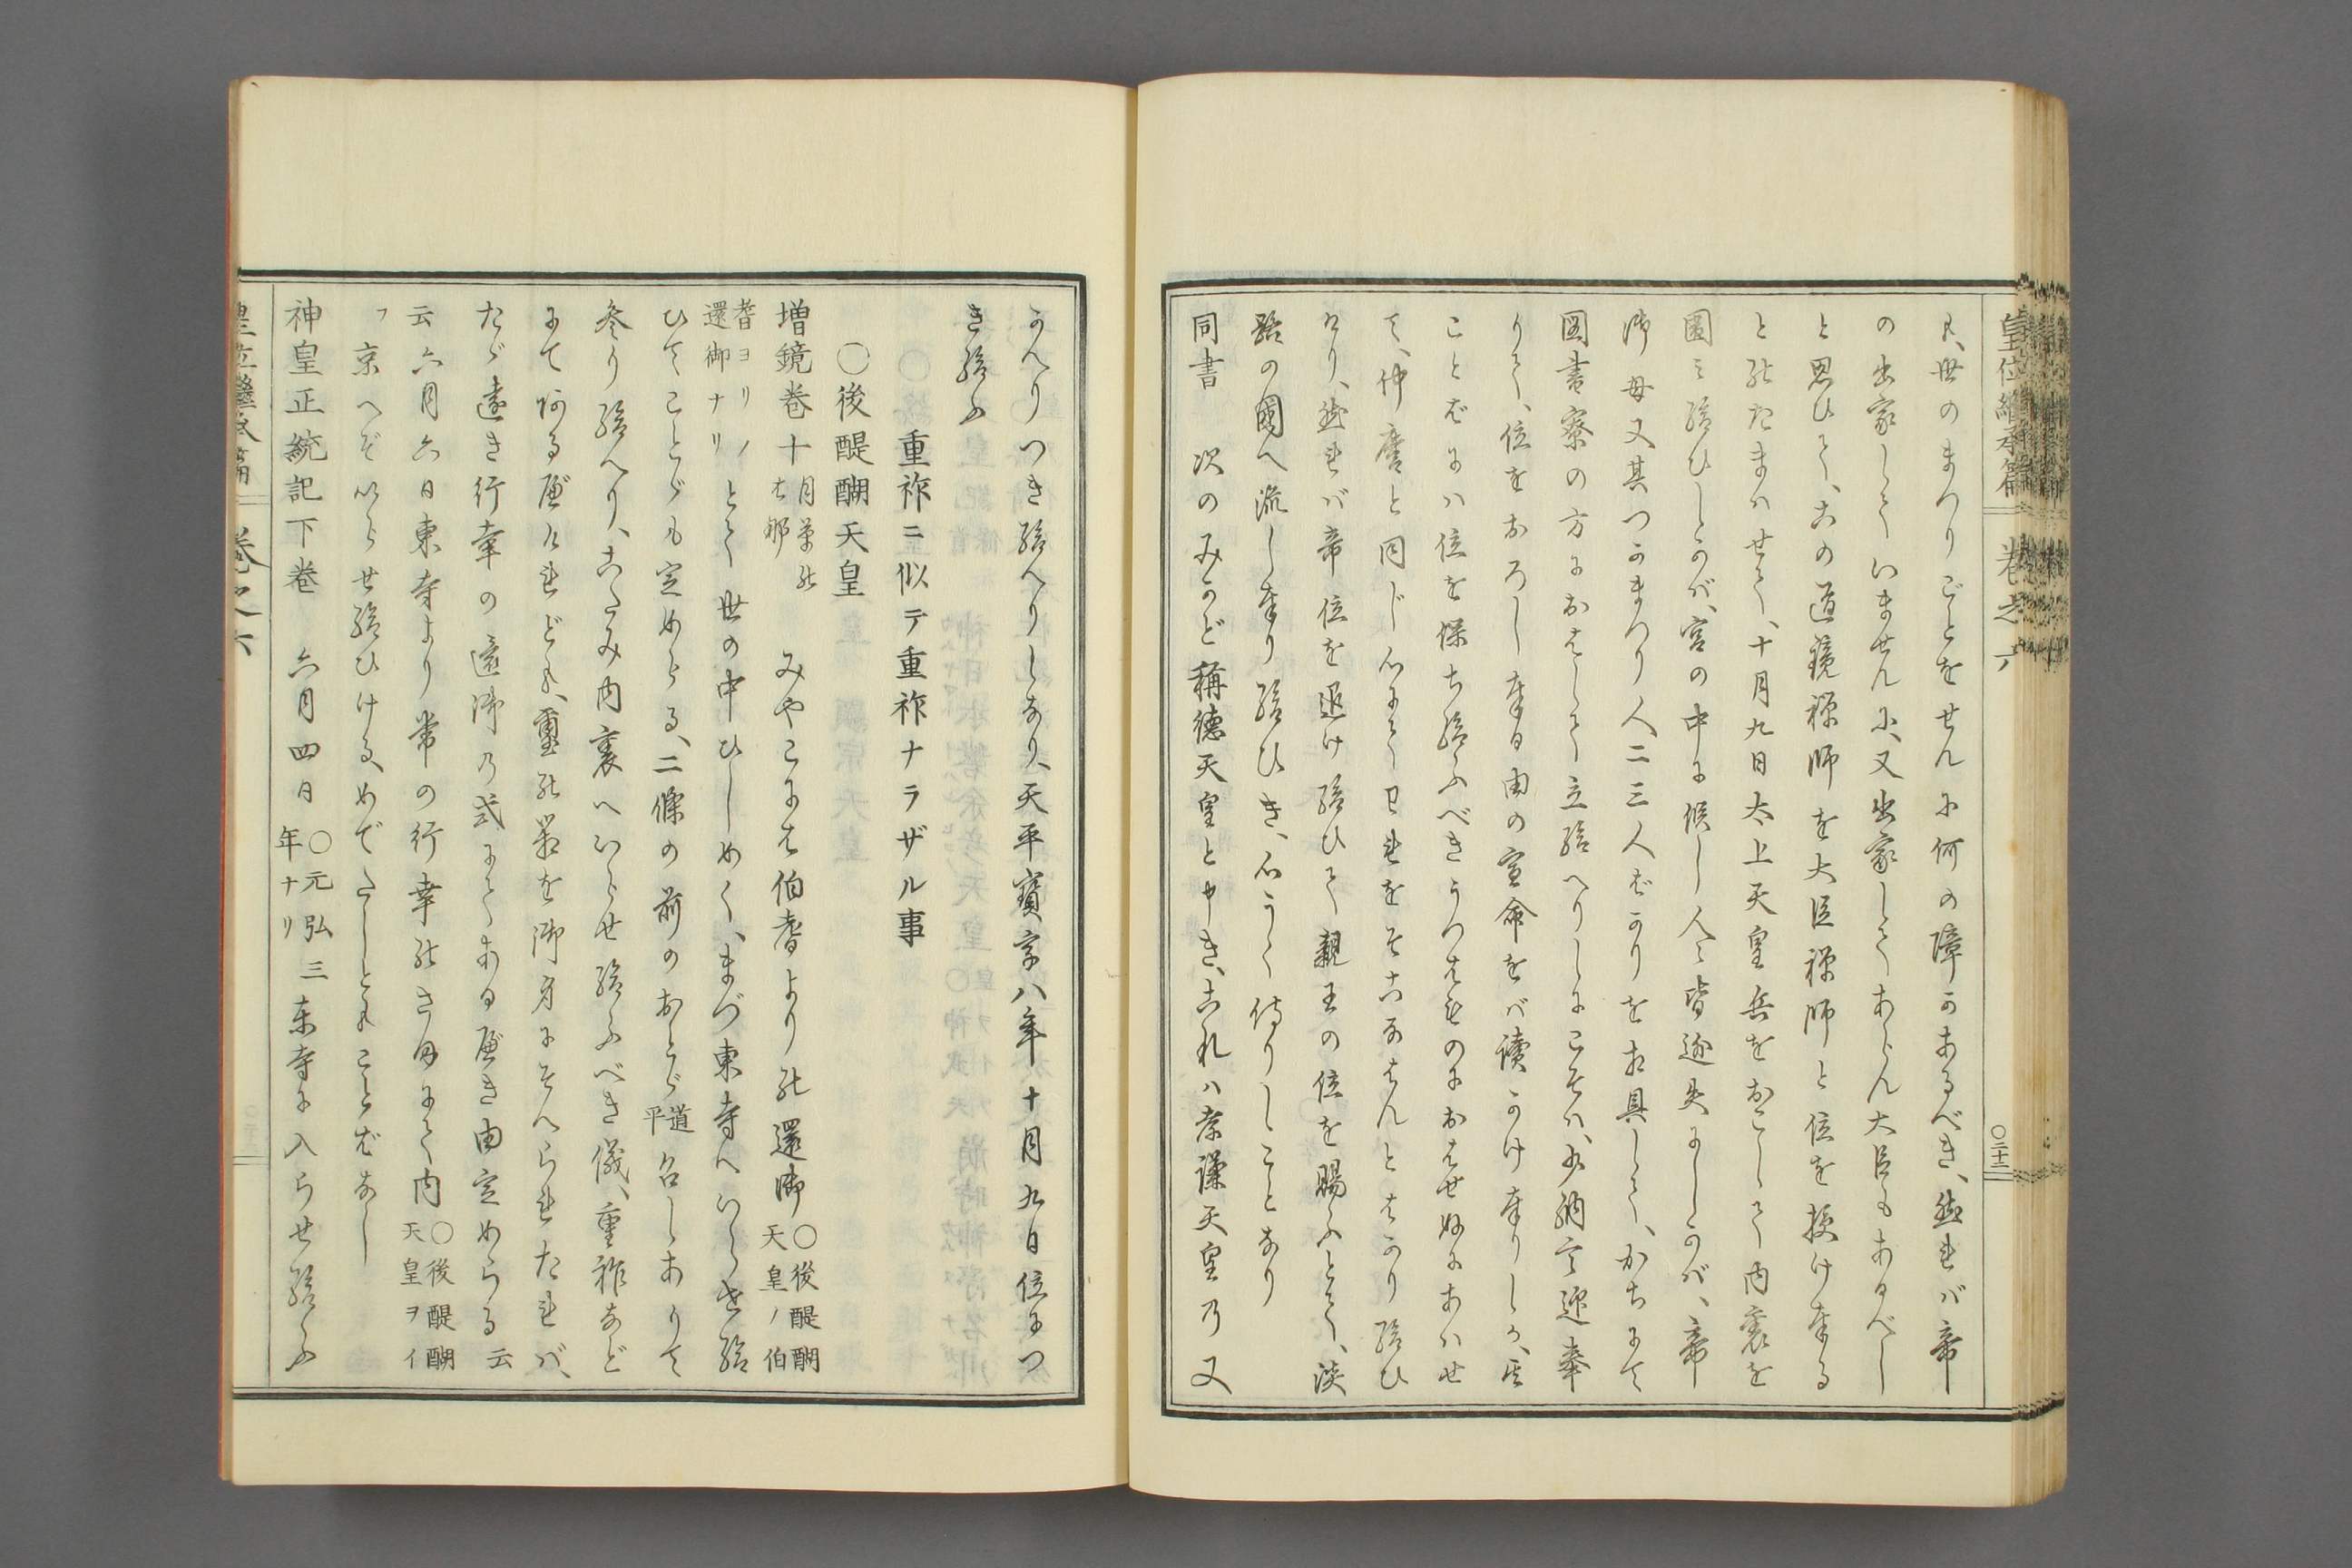 皇位繼承篇 卷之六 〇二十二
尺、世のまつりごとをせんに何の障かあるべき、然れバ帝
の出家していませんに、又出家してあらん大臣もあるべし
と思ひて、この道鏡禪師を大臣禪師と位を授け奉る
と詔たまはせて、十月九日太上天皇兵をおこして内裏を
圍ミ給ひしかバ、宮の中に候し人々皆迯失にしかバ、帝
御母又其つかまつり人二三人ばかりを相具して、かちにて
圖書寮の方におはして立給へりしにこそハ、少納言迎奉
りて、位をおろし奉る由の宣命をバ讀かけ奉りしか、其
ことばにハ位を保ち給ふべきうつはものにおはせぬにあハせ
て、仲麿と同じ心にてわれをそこなはんとはかり給ひ
けり、然れバ帝位を退け給ひて親王の位を賜ふとて、淡
路の國へ流し奉り給ひき、心うく侍りしことなり
同書 次のみかど稱德天皇と申き、これハ孝謙天皇乃又
かへりつき給へりしなり、天平寶字八年十月九日位につ
き給ふ
重祚ニ似テ重祚ナラザル事
〇後醍醐天皇
增鏡卷十 月草の花 みやこには伯耆よりの還御 〇後醍醐天皇ノ伯
耆ヨリノ還御ナリ とて世の中ひしめく、まづ東寺へいらせ給
ひてことゞも定めらる、二條の前のおとゞ 道平 召しありて
參り給へり、こたみ内裏へいらせ給ふべき儀、重祚などに
にてあるべけれども、璽の箱を御身にそへられたれバ、
たゞ遠き行幸の還御乃式にてあるべき由定めらる 云
云 六月六日東寺より常の行幸のさまにて内 〇後醍醐天皇ヲイ
フ 京へぞいらせ給ひける、めでたしともことばなし
神皇正統記下卷 六月四日 〇元弘三年ナリ 東寺に入らせ給ふ
皇位繼承篇 卷之六